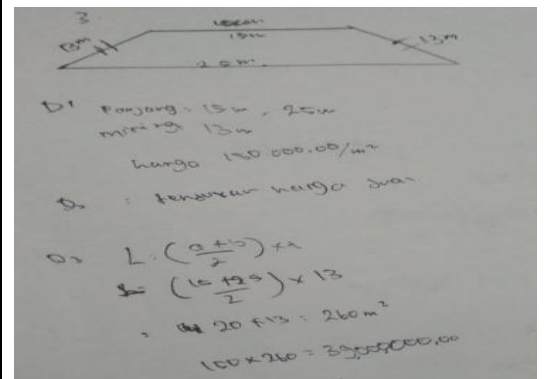 3.
15m
13m
13m
25m
D1 Panjang = 15m, 25m
miring 13m
harga 150.000.00/m²
D2 : tentukan harga jual
D3 L = (a+b/2) x t
= (15+25/2) x 13
= 20 x 13 = 260 m²
150 x 260 = 39,000,000,00